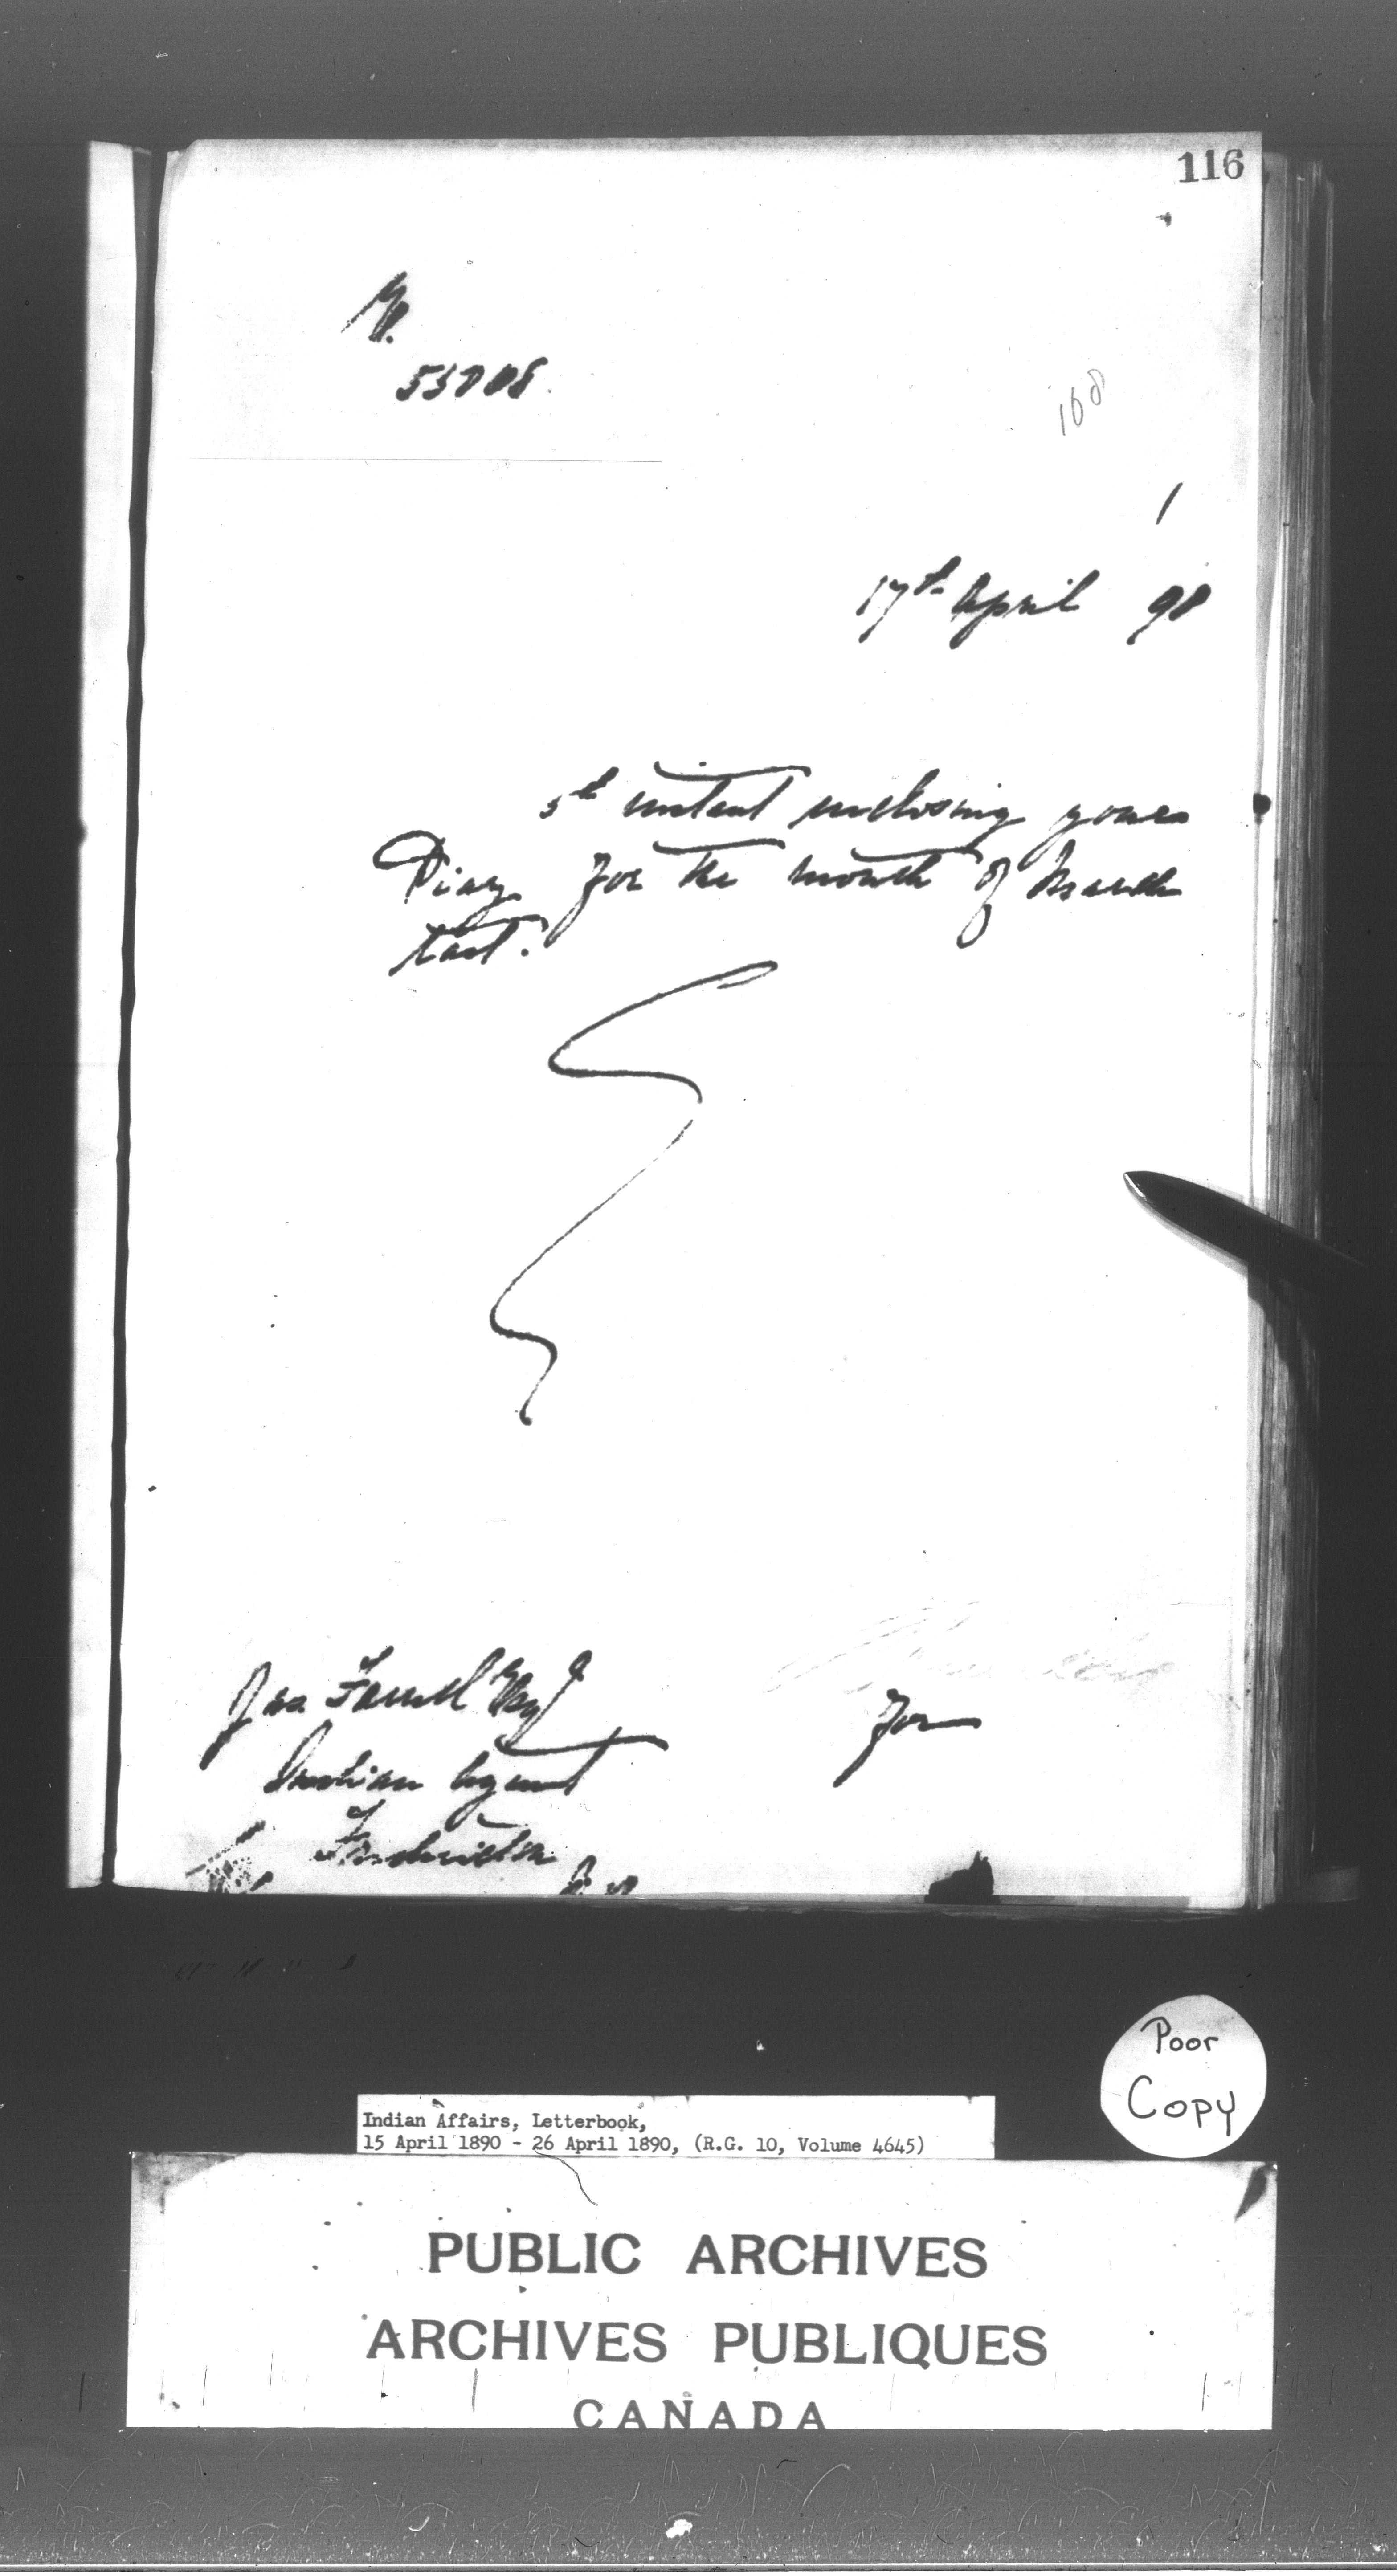 116
108
1
17th April 90
5th instant enclosing your
Diary for the month of March
last.
Jas Farrell Esq
Indian Agent
Fredericton
N.B.
for
Poor
Copy
Indian Affairs, Letterbook,
15 April 1890 - 26 April 1890, (R.G. 10, Volume 4645)
PUBLIC ARCHIVES
ARCHIVES PUBLIQUES
CANADA